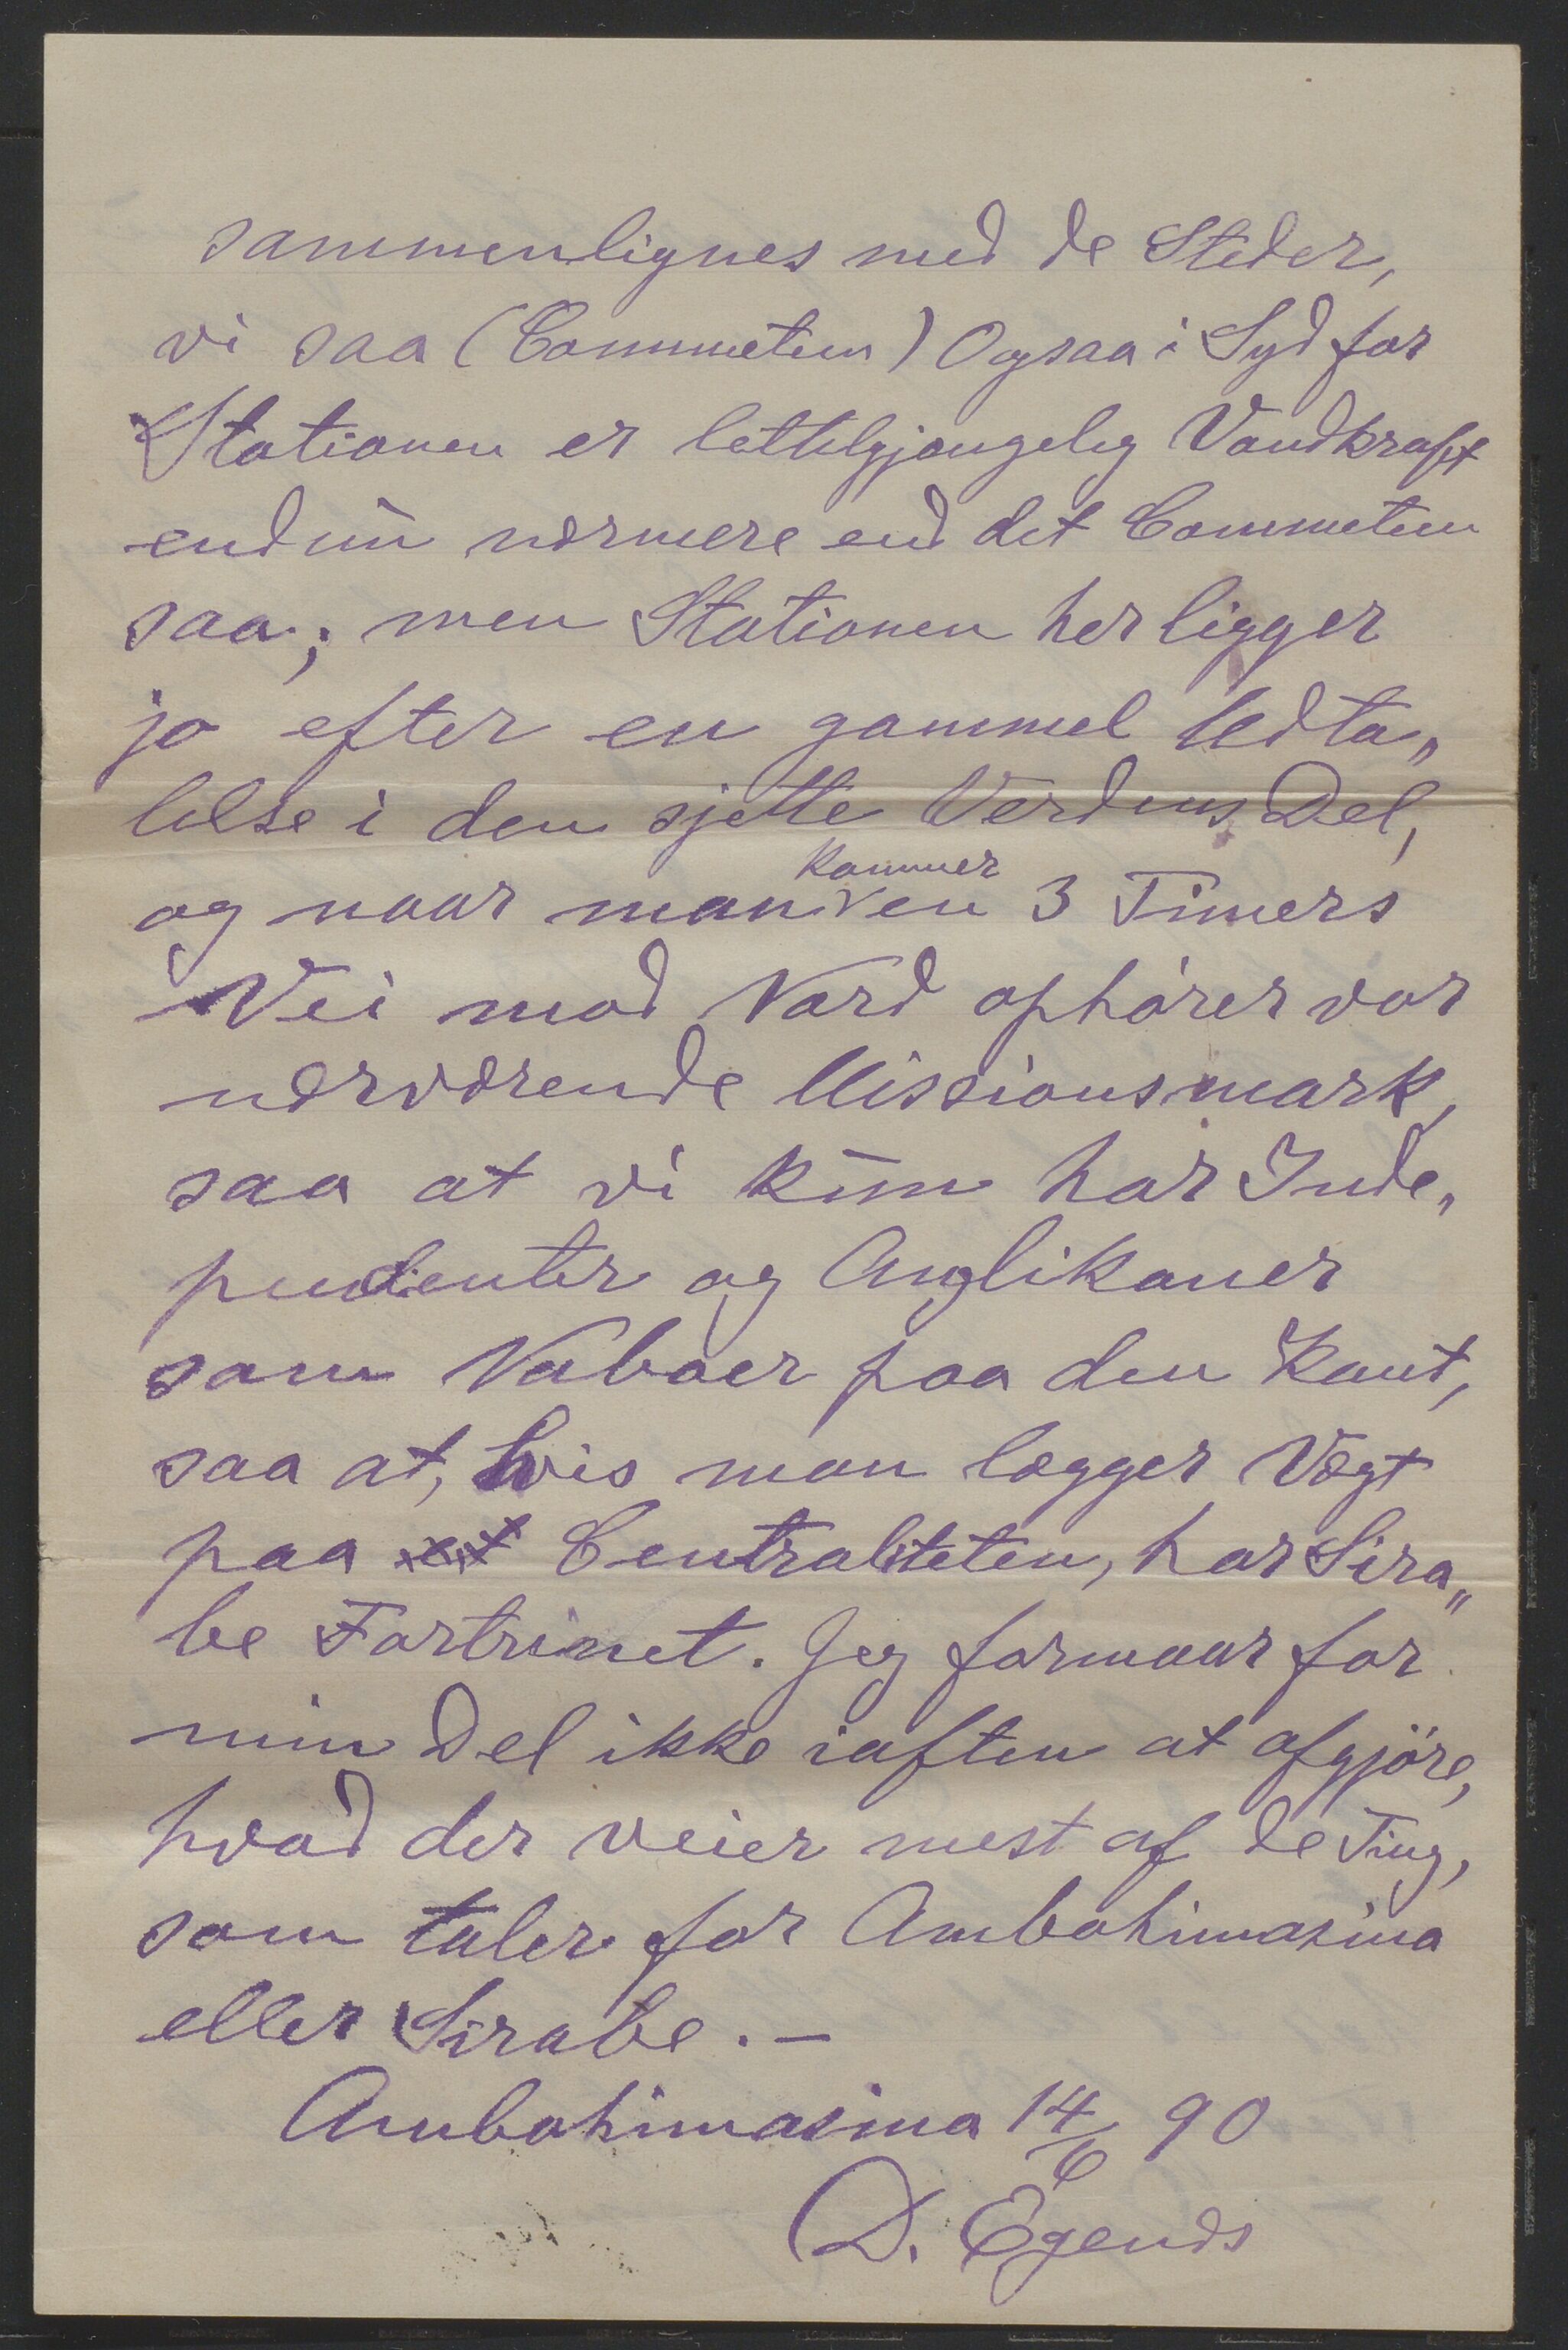 sammenlignes med de Steder,
vi saa (Committeen) Ogsaa i Syd for
Stationen er lettilgjængelig Vandkraft
endnu nærmere end det Committeen
saa; men Stationen her ligger
jo efter en gammel Udta„
lelse i den sjette Verdens Del,
og naar man kommer en 3 Timers
Vei mod Nord ophører vor
nærværende Missionsmark,
saa at vi kun har Inde„
pendenter og Anglikaner
som Naboer paa den Kant,
saa at, hvis man lægger Vægt
paa et Centraliteten, har Sira„
be Fortrinet. Jeg formaar for
min Del ikke iaften at afgjöre,
hvad der veier mest af de Ting,
som taler for Ambohimasina
eller Sirabe. –
Ambohimasina 14/6 90
D. Egenæs